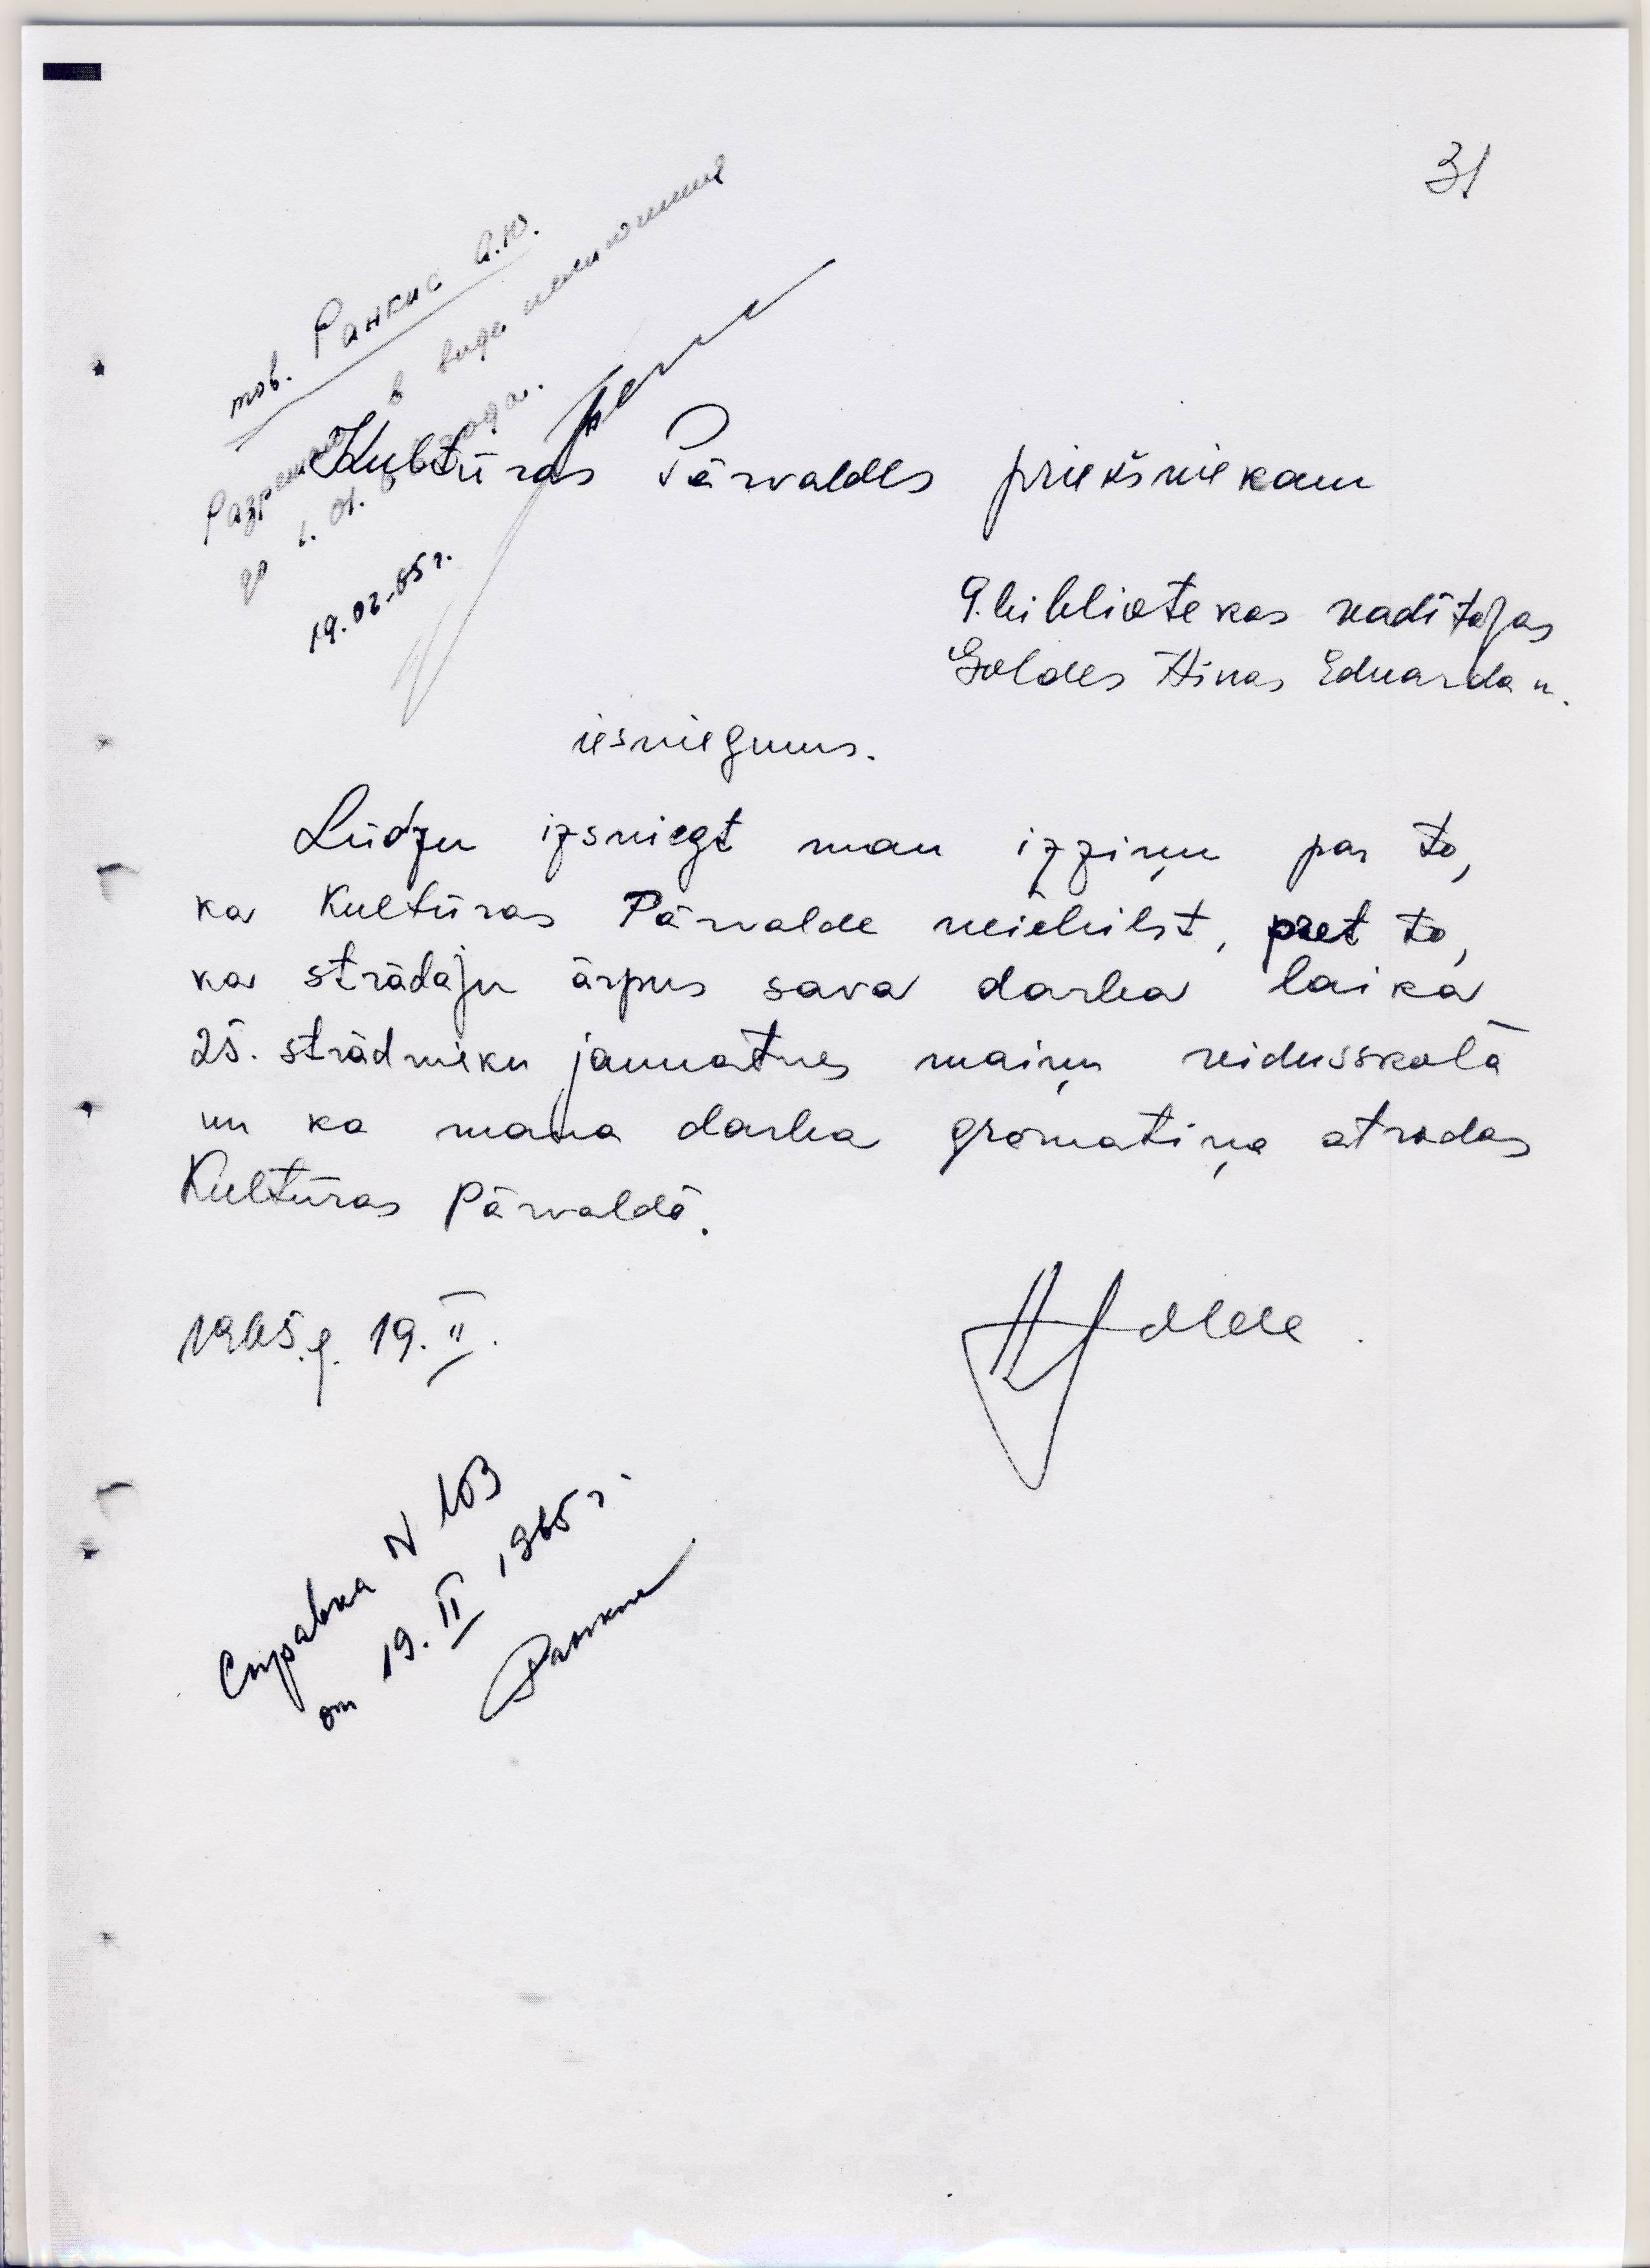 31
тов. Ранкис А.Ю.
Разрешаю в виде исключения
до 1. 01. года.
19.02.65 г.
Kultūras Pārvaldes priekšniekam
9. bibliotekas vadītājas
Goldes Ainas Eduarda m.
iesniegums.
Lūdzu izsniegt man izziņu par to,
ka Kultūras Pārvalde neiebilst, pret to,
ka strādāju ārpus sava darba laika
25. strādnieku jaunatnes maiņu vidusskolā
un ka mana darba grāmatiņa atrodas
Kultūras Pārvaldē.
1965.g. 19.II.
AGolde.
Справка N 103
от 19.II 1965 г.
Ранкис